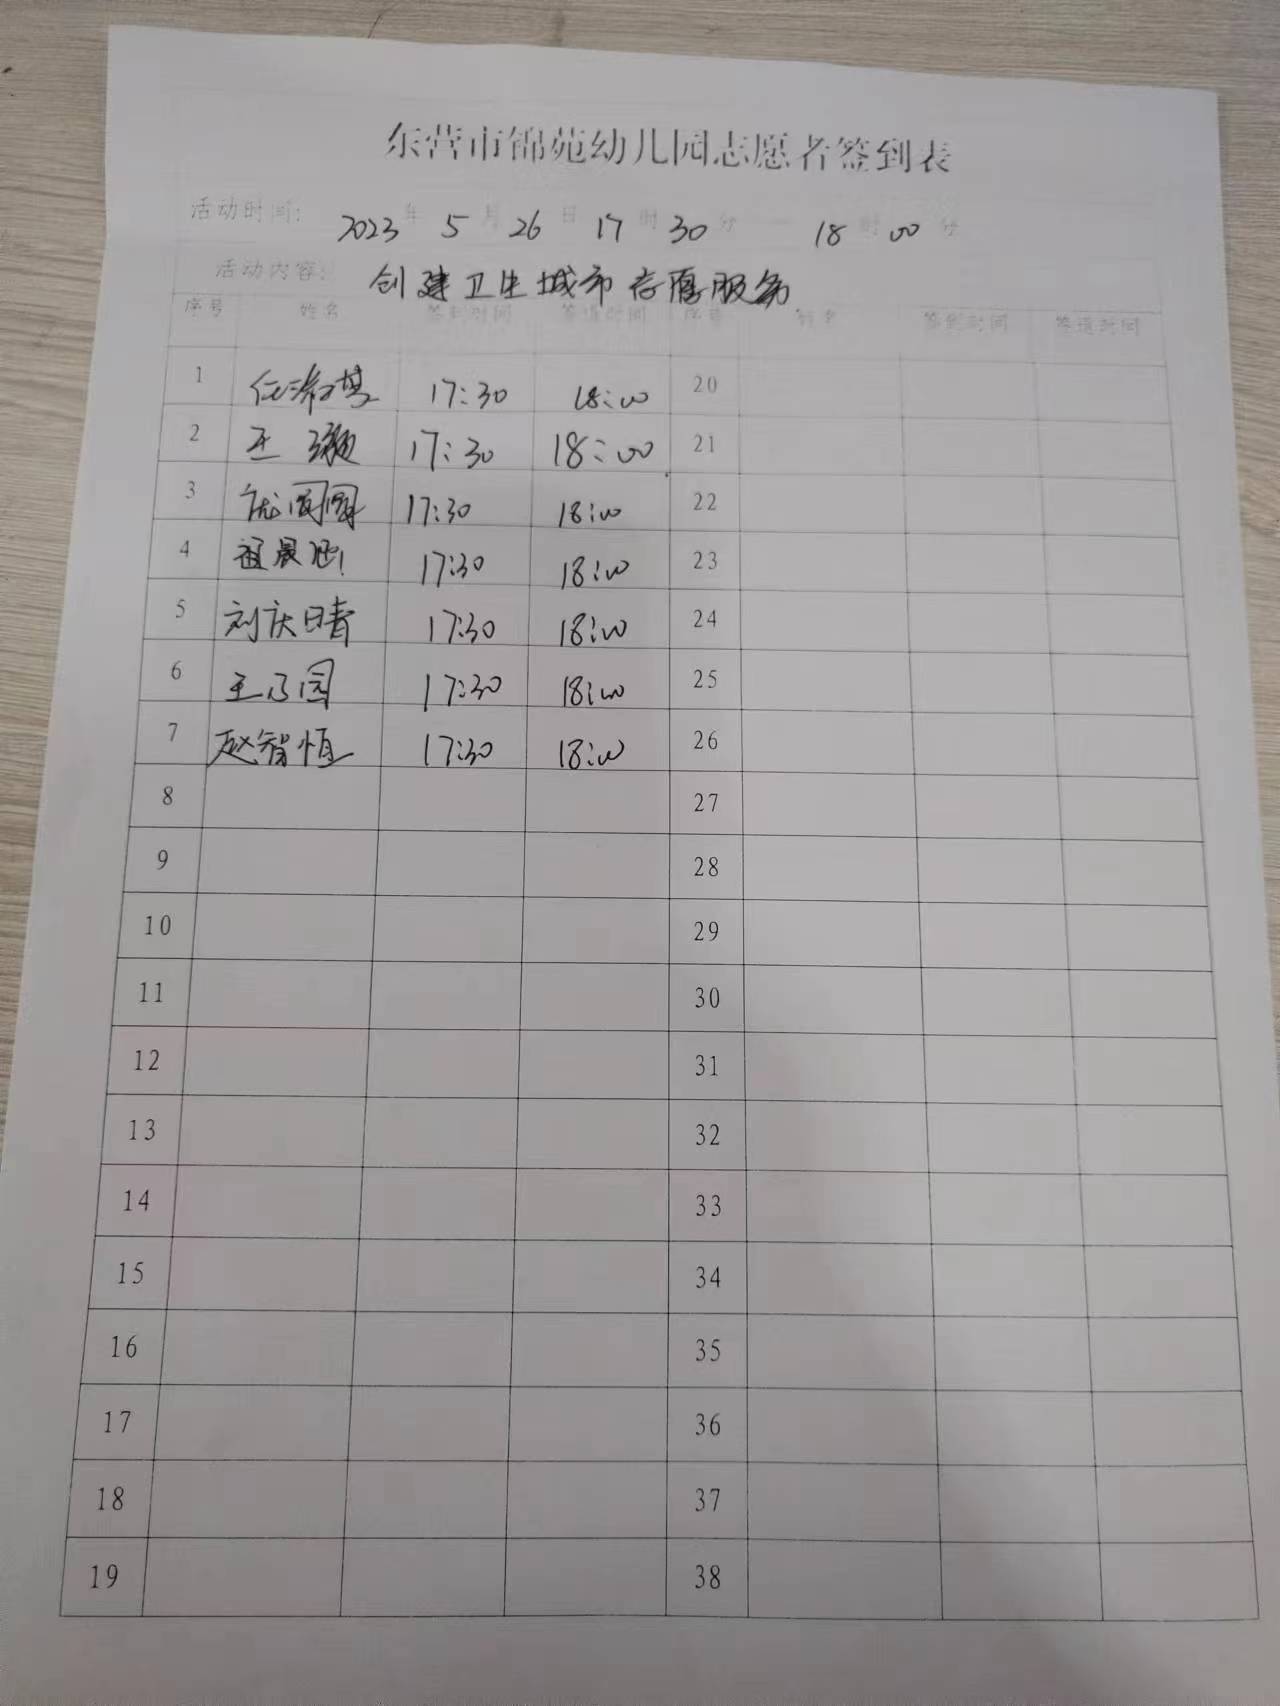 东营市锦苑幼儿园志愿者签到表
活动时间: 2023年5月26日17时30分—18时00分
活动内容: 创建卫生城市志愿服务
序号 姓名 签到时间 签退时间 序号 姓名 签到时间 签退时间
1 任 17:30 18:00 20
2 王颖 17:30 18:00 21
3 17:30 18:00 22
4 晨 17:30 18:00 23
5 刘庆晴 17:30 18:00 24
6 王乃园 17:30 18:00 25
7 赵智恒 17:30 18:00 26
8 27
9 28
10 29
11 30
12 31
13 32
14 33
15 34
16 35
17 36
18 37
19 38